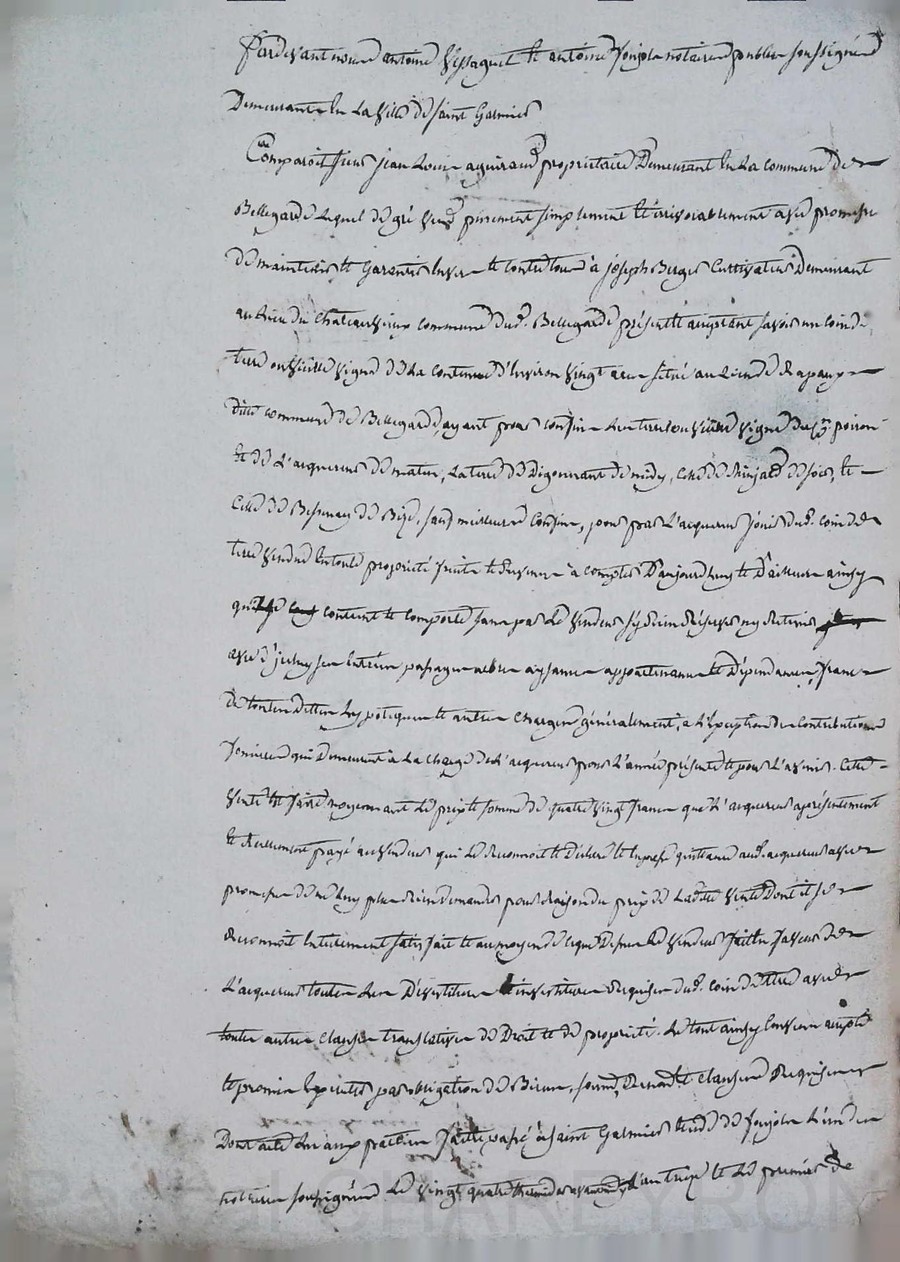 Pardevant nous antoine Vissaguet et antoine foujols notaires publics soussignés
Demeurants en La Ville de Saint Galmier
Comparoit Sieur jean Louis aguiraud propriétaire Demeurant En La commune de
Bellegarde Lequel de gré vend purement simplement et irrévocablement avec promesse
de maintenir et Garentir Envers et contre tous à joseph Berger Cultivateur Demeurant
au lieu du Chateauvieux commune dud. Bellegarde présent et aceptant savoir un coin de
terre ou vieille vigne de La contenue d'Environ vingt ares situé au Lieu de
Dite commune de Bellegarde, ayant pour confins Les terre ou vieille vigne du Cen poiron
et de L'acquereur de matin, La terre de Digonnant de midy, Celle de de soir, et
Celle de Bessenay de Bize, sauf meilleurs Confins, pour par L'acquereur jouir dud. coin de
terre vendu En toute propriété fruits et Revenus à compter D'aujourd'huy et D'ailleurs ainsy
qu'il se contient et comporte sans par Le Vendeur s'y Rien Réserver ny Retenir
avec d'iceluy ses Entrées passages arbres aysances appartenances et Dépendances, franc
De toutes Dettes hypoteques et autres Charges généralement, a L'Exception des Contributions
foncieres qui Demeurent à La charge de L'acquereur pour L'année présente et pour L'avenir. Cette
Vente Est faite moyennant Le prix et somme de quatre vingt francs que L'acquereur a présentement
et Réellement payé au Vendeur qui Le Reconnoit et Déclare et En passe quittance aud. acquereur avec
promesse de ne Luy plus Rien demander pour Raison du prix de Ladite Vente Dont il se
Reconnoit Entierement satisfait et au moyen de ce que Dessus Le Vendeur fait En faveur de
L'acquereur toutes Les Dévestitures investitures Requises dud. coin de terre avec
toutes autres clauses translatives de Droit et de propriété. Le tout ainsy Convenu accepté
et promis Exécuter par obligation de Biens, soumis, Renoncé et clauses Requises
Dont acte Lu aux parties fait et passé à Saint Galmier Etude de foujols L'un des
notaires soussignés Le vingt quatre l'an treize et Le premier de